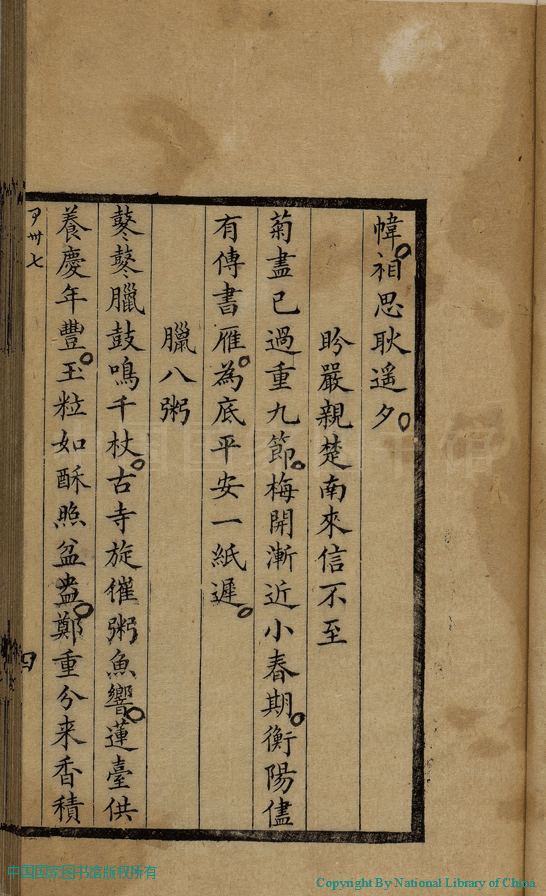 幃。相思耿遥夕。
盻嚴親楚南來信不至
菊盡已過重九節。梅開漸近小春期。衡陽儘
有傳書雁。為底平安一紙遲。
臘八粥
鼕鼕臘鼓鳴千杖。古寺旋催粥魚響。蓮臺供
養慶年豐。玉粒如酥熈盆盎。鄭重分来香積
卅七
四
中国国家图书馆版权所有
Copyright By National Library of China